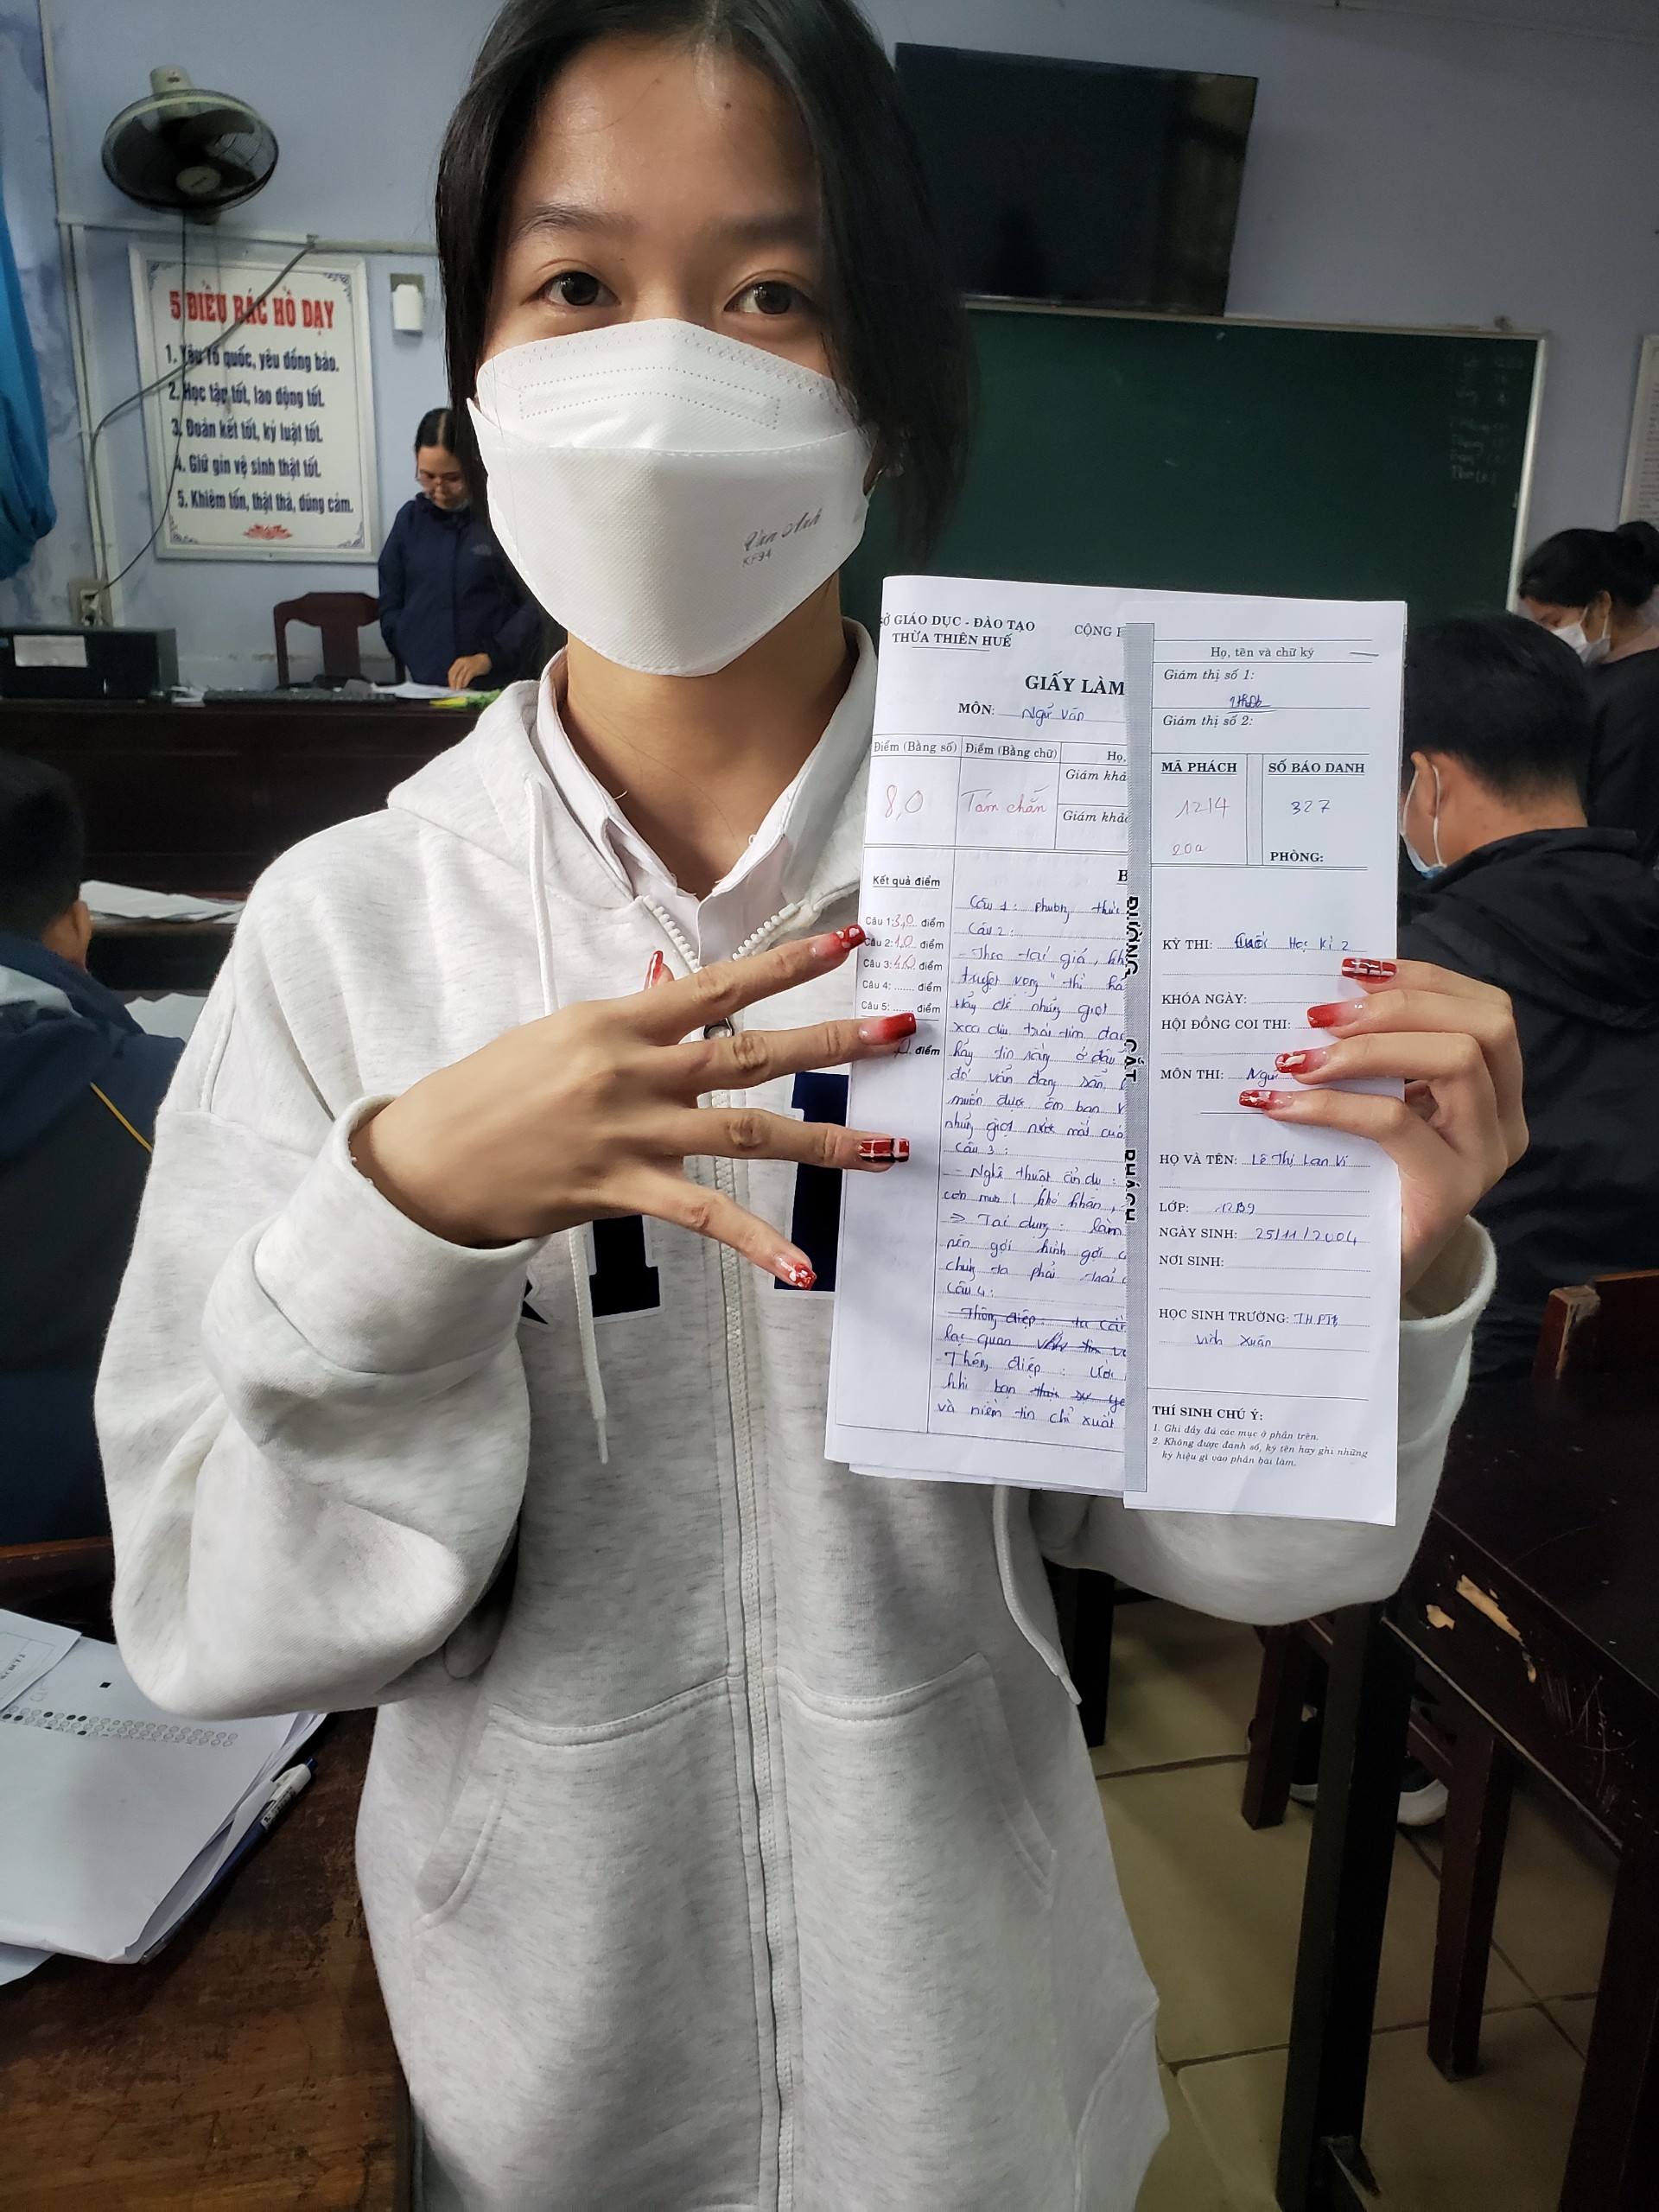 5 ĐIỀU BÁC HỒ DẠY
1. Yêu Tổ quốc, yêu đồng bào.
2. Học tập tốt, lao động tốt.
3. Đoàn kết tốt, kỷ luật tốt.
4. Giữ gìn vệ sinh thật tốt.
5. Khiêm tốn, thật thà, dũng cảm.
Vân Anh
KF94
Ở GIÁO DỤC - ĐÀO TẠO
THỪA THIÊN HUẾ
CỘNG
GIẤY LÀM
MÔN: Ngữ Văn
Điểm (Bằng số) Điểm (Bằng chữ) Họ,
8,0 Tám chẵn
Giám khả
Giám khảo
Kết quả điểm
Câu 1: 3,0 điểm
Câu 2: 1,0 điểm
Câu 3: 4,0 điểm
Câu 4: ...... điểm
Câu 5: ...... điểm
điểm
B
Câu 1: phương thức
Câu 2:
- Theo tác giả,
tuyệt vọng" thì hã
Hãy để những giọt
xoa dịu trái tim đa
hãy tin rằng ở đâu
đó vẫn đang sẵn,
muốn được ôm bạn v
những giọt nước mắt
Câu 3:
- Nghệ thuật ẩn dụ:
cơn mưa (khó khăn,
=> Tác dụng: làm
nên gợi hình gợi c
chúng ta phải trải
Câu 4:
Thông điệp: ta cần
lạc quan
- Thông điệp:
khi bạn
và niềm tin chỉ xuất
ĐƯỜNG CẮT PHÁCH
Họ, tên và chữ ký
Giám thị số 1:
Giám thị số 2:
MÃ PHÁCH SỐ BÁO DANH
1214 327
20a
PHÒNG:
KỲ THI: Cuối Học Kì 2
KHÓA NGÀY:
HỘI ĐỒNG COI THI:
MÔN THI: Ngữ
HỌ VÀ TÊN: Lê Thị Lan Vi
LỚP: 12B9
NGÀY SINH: 25/11/2004
NƠI SINH:
HỌC SINH TRƯỜNG: THPT
Vinh Xuân
THÍ SINH CHÚ Ý:
1. Ghi đầy đủ các mục ở phần trên.
2. Không được đánh số, ký tên hay ghi những
ký hiệu gì vào phần bài làm.